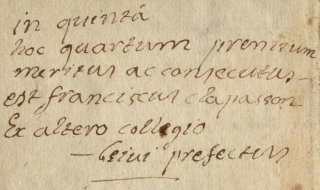 in quintâ
hoc quartum premium
meritus ac consecutus
est franciscus clapasson
Ex altero collegio
prefectus